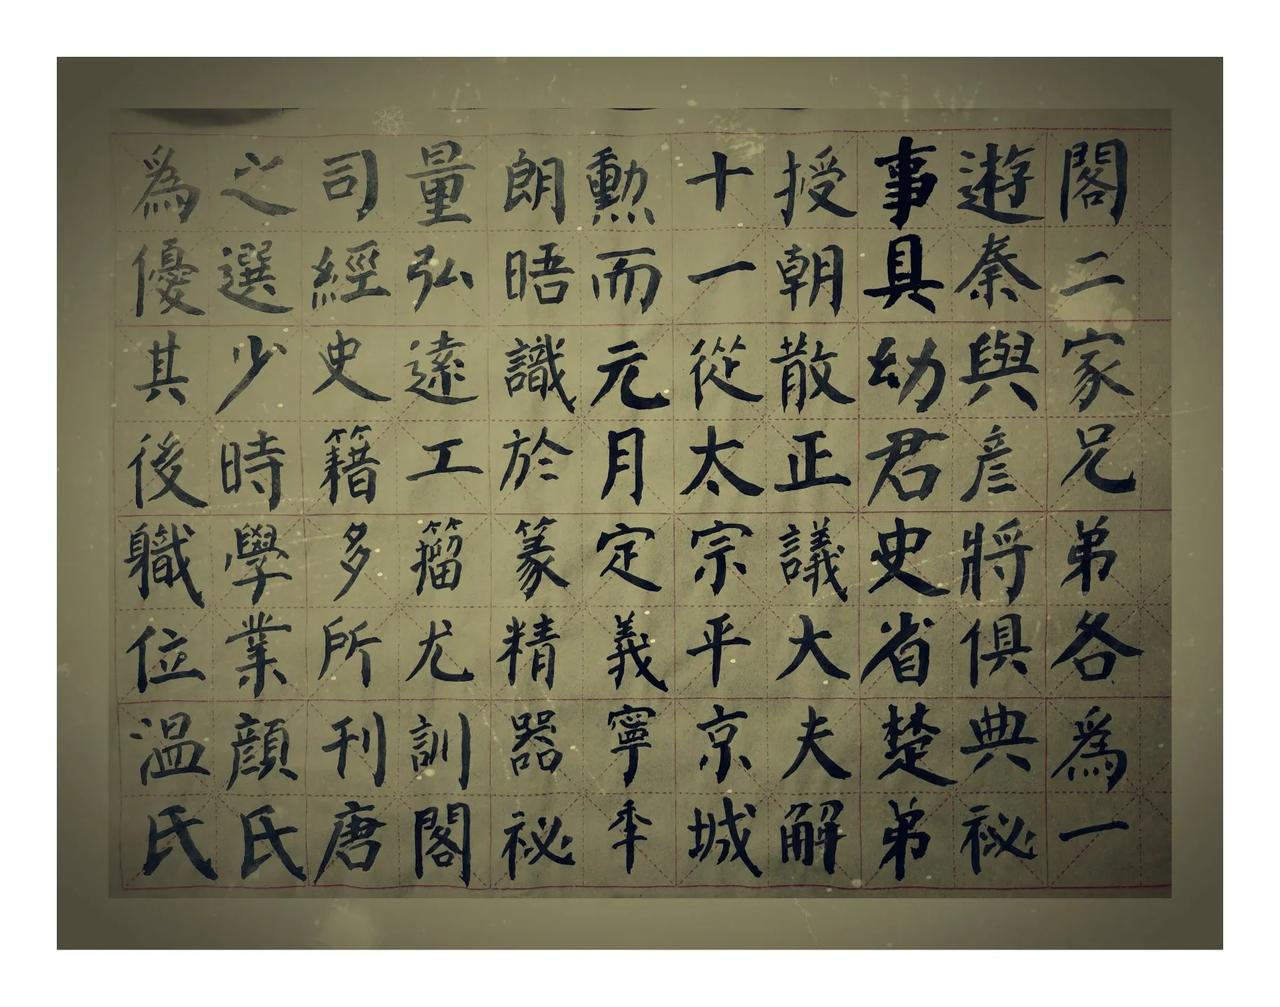 閣二家兄弟各爲一
遊秦與彦將俱典祕
事具幼君史省楚弟
授朝散正議大夫解
十一從太宗平京城
勲而元月定義寧秊
朗晤識於篆精器祕
量弘遠工籀尤訓閣
司經史籍多所刊唐
之選少時學業顔氏
爲優其後職位温氏